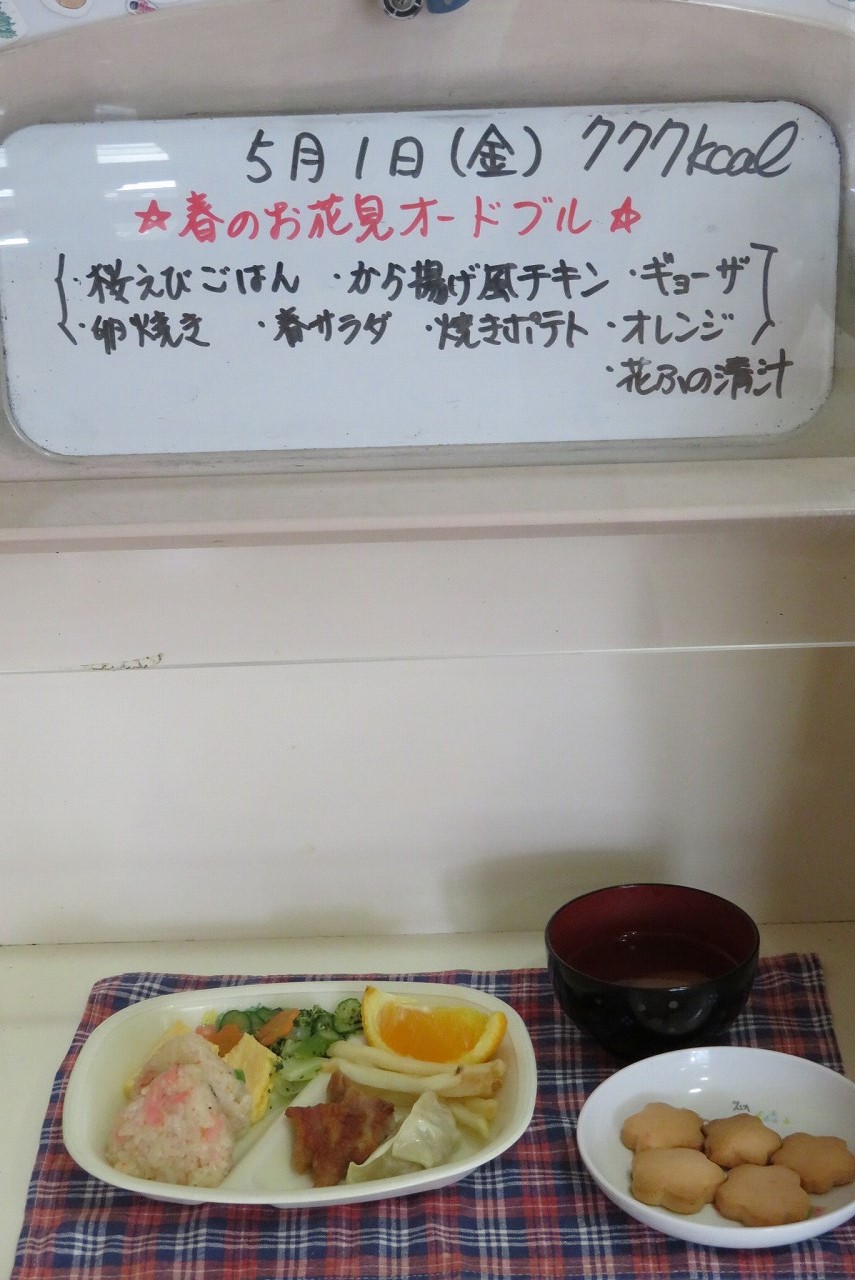 5月1日(金) 777kcal
☆春のお花見オードブル☆
・桜えびごはん ・から揚げ風チキン ・ギョーザ
・卵焼き ・春サラダ ・焼きポテト ・オレンジ
・花ふの清汁